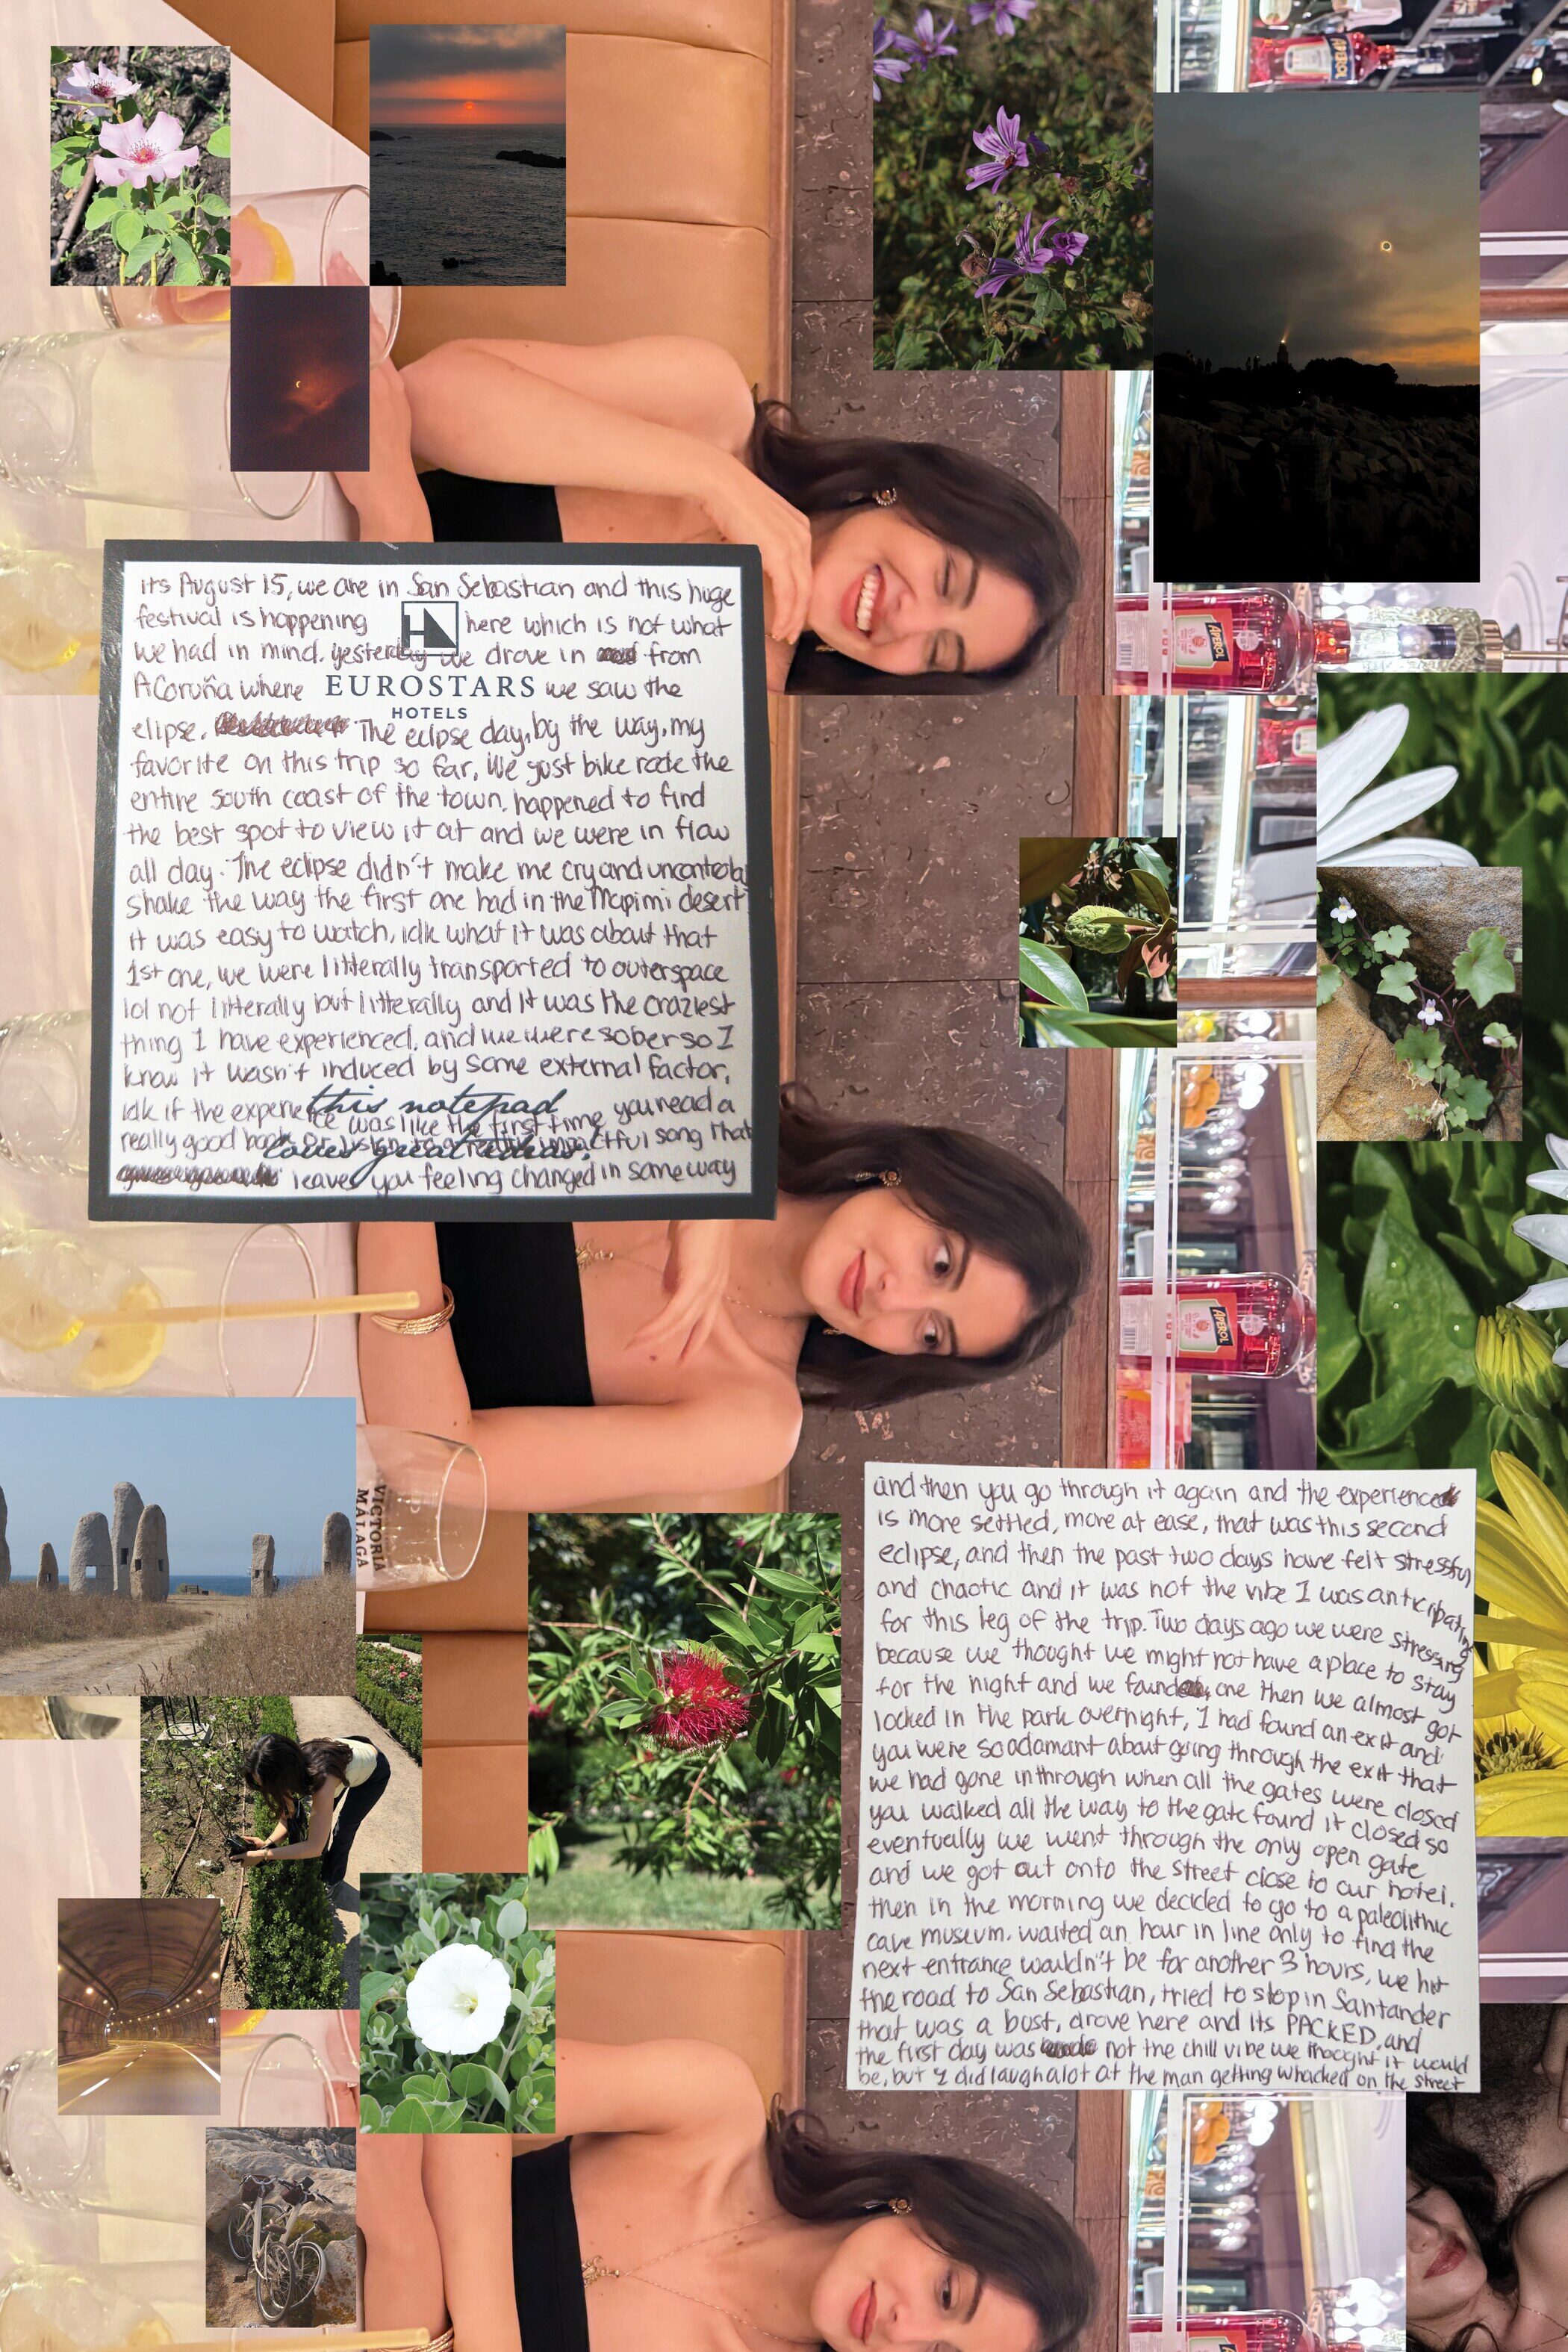 its August 15, we are in San Sebastian and this huge
festival is happening here which is not what
we had in mind. yesterday we drove in from
A Coruña where we saw the
EUROSTARS
HOTELS
elipse. The eclipse day, by the way, my
favorite on this trip so far, We just bike rode the
entire south coast of the town. happened to find
the best spot to view it at and we were in flow
all day. The eclipse didn't make me cry and uncontrola
shake the way the first one had in the Mapimi desert
it was easy to watch, idk what it was about that
1st one, we were litterally transported to outerspace
lol not litterally but litterally and it was the craziest
thing I have experienced, and we were sober so I
know it wasn't induced by some external factor,
idk if the experience was like the first time you read a
this notepad
really good book or listen to a really impactful song that
loves great ideas.
leaves you feeling changed in some way
and then you go through it again and the experience
is more settled, more at ease, that was this second
eclipse, and then the past two days have felt stressful
and chaotic and it was not the vibe I was anticipating
for this leg of the trip. Two days ago we were stressing
because we thought we might not have a place to stay
for the night and we found one then we almost got
locked in the park overnight, I had found an exit and
you were so adamant about going through the exit that
we had gone in through when all the gates were closed
you walked all the way to the gate found it closed so
eventually we went through the only open gate
and we got out onto the street close to our hotel.
then in the morning we decided to go to a paleolithic
cave museum. waited an hour in line only to find the
next entrance wouldn't be for another 3 hours, we hit
the road to San Sebastian, tried to stop in Santander
that was a bust, drove here and its PACKED, and
the first day was not the chill vibe we thought it would
be, but I did laugh alot at the man getting whacked on the street
APEROL
APEROL
APEROL
VICTORIA
MÁLAGA